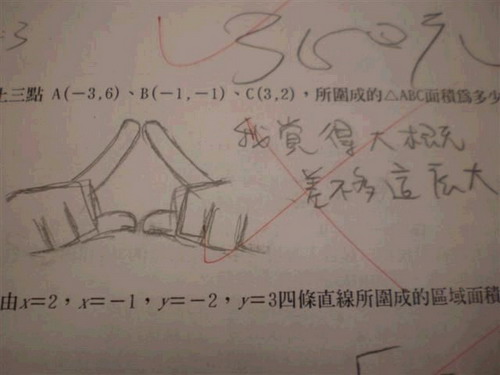 =3
360元
上三點 A(-3,6)、B(-1,-1)、C(3,2),所圍成的△ABC面積為多少
我覺得大概
差不多這麼大
由x=2,x=-1,y=-2,y=3四條直線所圍成的區域面積